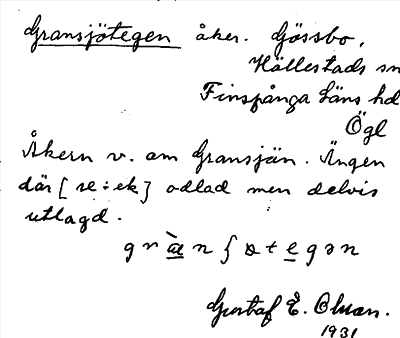 Gransjötegen åker. Gössbo,
Hällestads sn
Finspånga läns hd
Ögl
Åkern v. om Gransjön. Ängen
där [se: ek] odlad men delvis
utlagd.
Gustaf E. Olsson.
1931